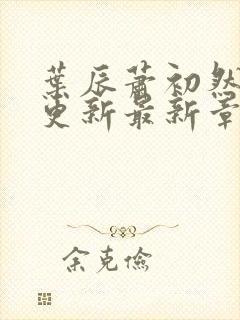 葉辰蕭初然
更新最新章
余克儉